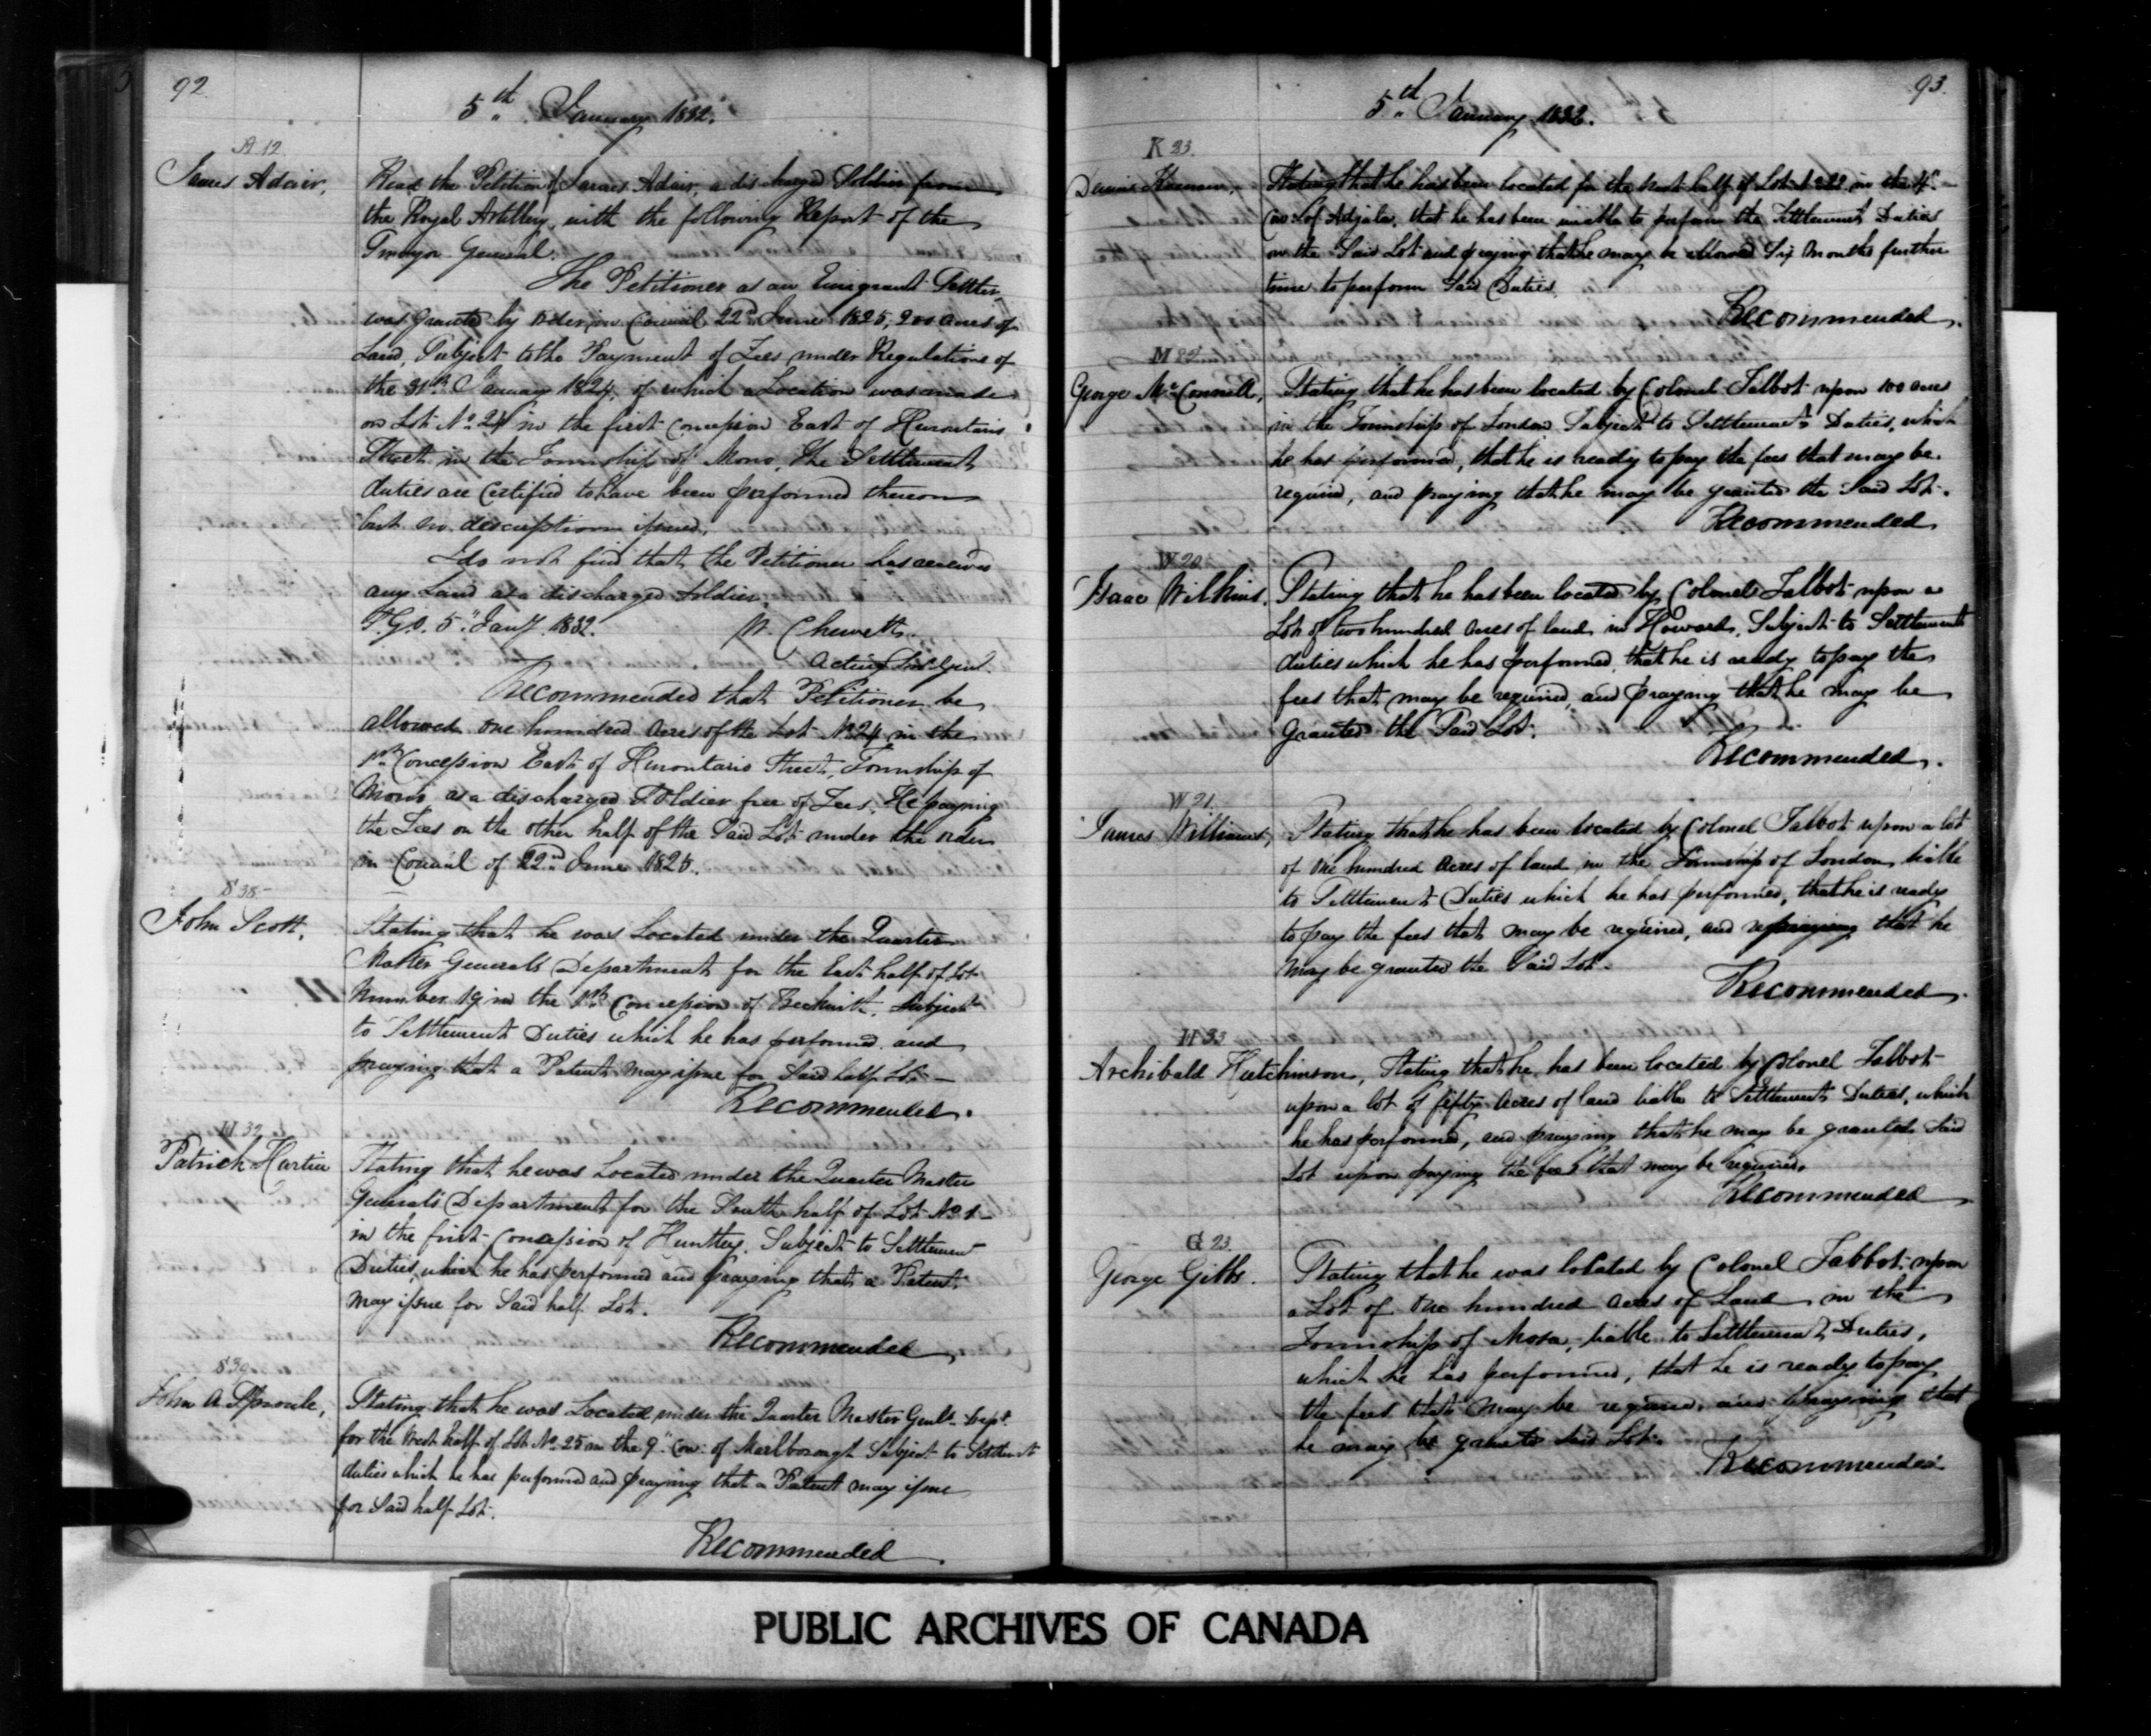 92
5th January 1832.
A 12
James Adair,
Read the Petition of James Adair, a discharged Soldier from
the Royal Artillery, with the following Report of the
General.
The Petitioner as an Emigrant Settler
was granted by order in Council 22d June 1825, 200 acres of
Land, Subject to the Payment of Fees under Regulations of
the January 1824, of which a Location was made
on Lot No. 24 in the first Concession East of Hurontario
Street in the Township of Mono, the Settlement
duties are Certified to have been performed thereon
but no description issued.
I do not find that the Petitioner has received
any Land as a discharged Soldier.
S.G.O. 5" Jany. 1832. W. Chewett.
Acting Sur. Genl.
Recommended that Petitioner be
allowed one hundred acres of the Lot No 24 in the
1st Concession East of Hurontario Street, Township of
Mono as a discharged Soldier free of Fees, He paying
the Fees on the other half of the Said Lot under the order
in Council of 22nd June 1825.
S 38
John Scott,
Stating that he was Located under the Quarter
Master Generals Department for the East half of Lot
Number 19 in the Concession of Beckwith, Subject
to Settlement Duties which he has performed and
praying that a Patent may issue for Said half Lot —
Recommended.
H 32
Patrick Hartin
Stating that he was Located under the Quarter Master
General's Department for the South half of Lot No 1
in the first Concession of Huntley, Subject to Settlement
Duties, which he has performed and praying that a Patent
may issue for Said half Lot.
Recommended
S 39
John A. Sproule,
Stating that he was Located under the Quarter Master Genls. Dept.
for the West half of Lot No 25 in the 9" Con: of Marlborough Subject to Settlemt
duties which he has performed and praying that a Patent may issue
for Said half Lot.
Recommended
93.
5th January 1832.
K 23.
Stating that he has been located for the half of Lot in the
Con: of Adjala, that he has been unable to perform the Settlement Duties
on the Said Lot and praying that he may be allowed Six Months further
time to perform Said Duties.
Recommended.
M 82
George McConnell,
Stating that he has been located by Colonel Talbot upon 100 acres
in the Township of London Subject to Settlement Duties, which
he has performed, that he is ready to pay the fees that may be
required, and praying that he may be granted the Said Lot.
Recommended
W 20
Isaac Wilkins.
Stating that he has been located by Colonel Talbot upon a
Lot of two hundred acres of land in Howard, Subject to Settlement
duties which he has performed that he is ready to pay the
fees that may be required, and praying that he may be
granted the Said Lot.
Recommended.
W 21.
James Williams,
Stating that he has been located by Colonel Talbot upon a lot
of one hundred acres of land in the Township of London, liable
to Settlement Duties which he has performed, that he is ready
to pay the fees that may be required, and praying that he
may be granted the Said Lot.
Recommended.
H 33
Archibald Hutchinson,
Stating that he has been located by Colonel Talbot
upon a lot of fifty acres of land liable to Settlement Duties, which
he has performed, and praying that he may be granted Said
Lot upon paying the fees that may be required.
Recommended
G 23.
George Gibbs.
Stating that he was located by Colonel Talbot upon
a Lot of one hundred acres of Land in the
Township of Mosa, liable to Settlement Duties,
which he has performed, that he is ready to pay
the fees that may be required, and praying that
he may be granted Said Lot.
Recommended
PUBLIC ARCHIVES OF CANADA